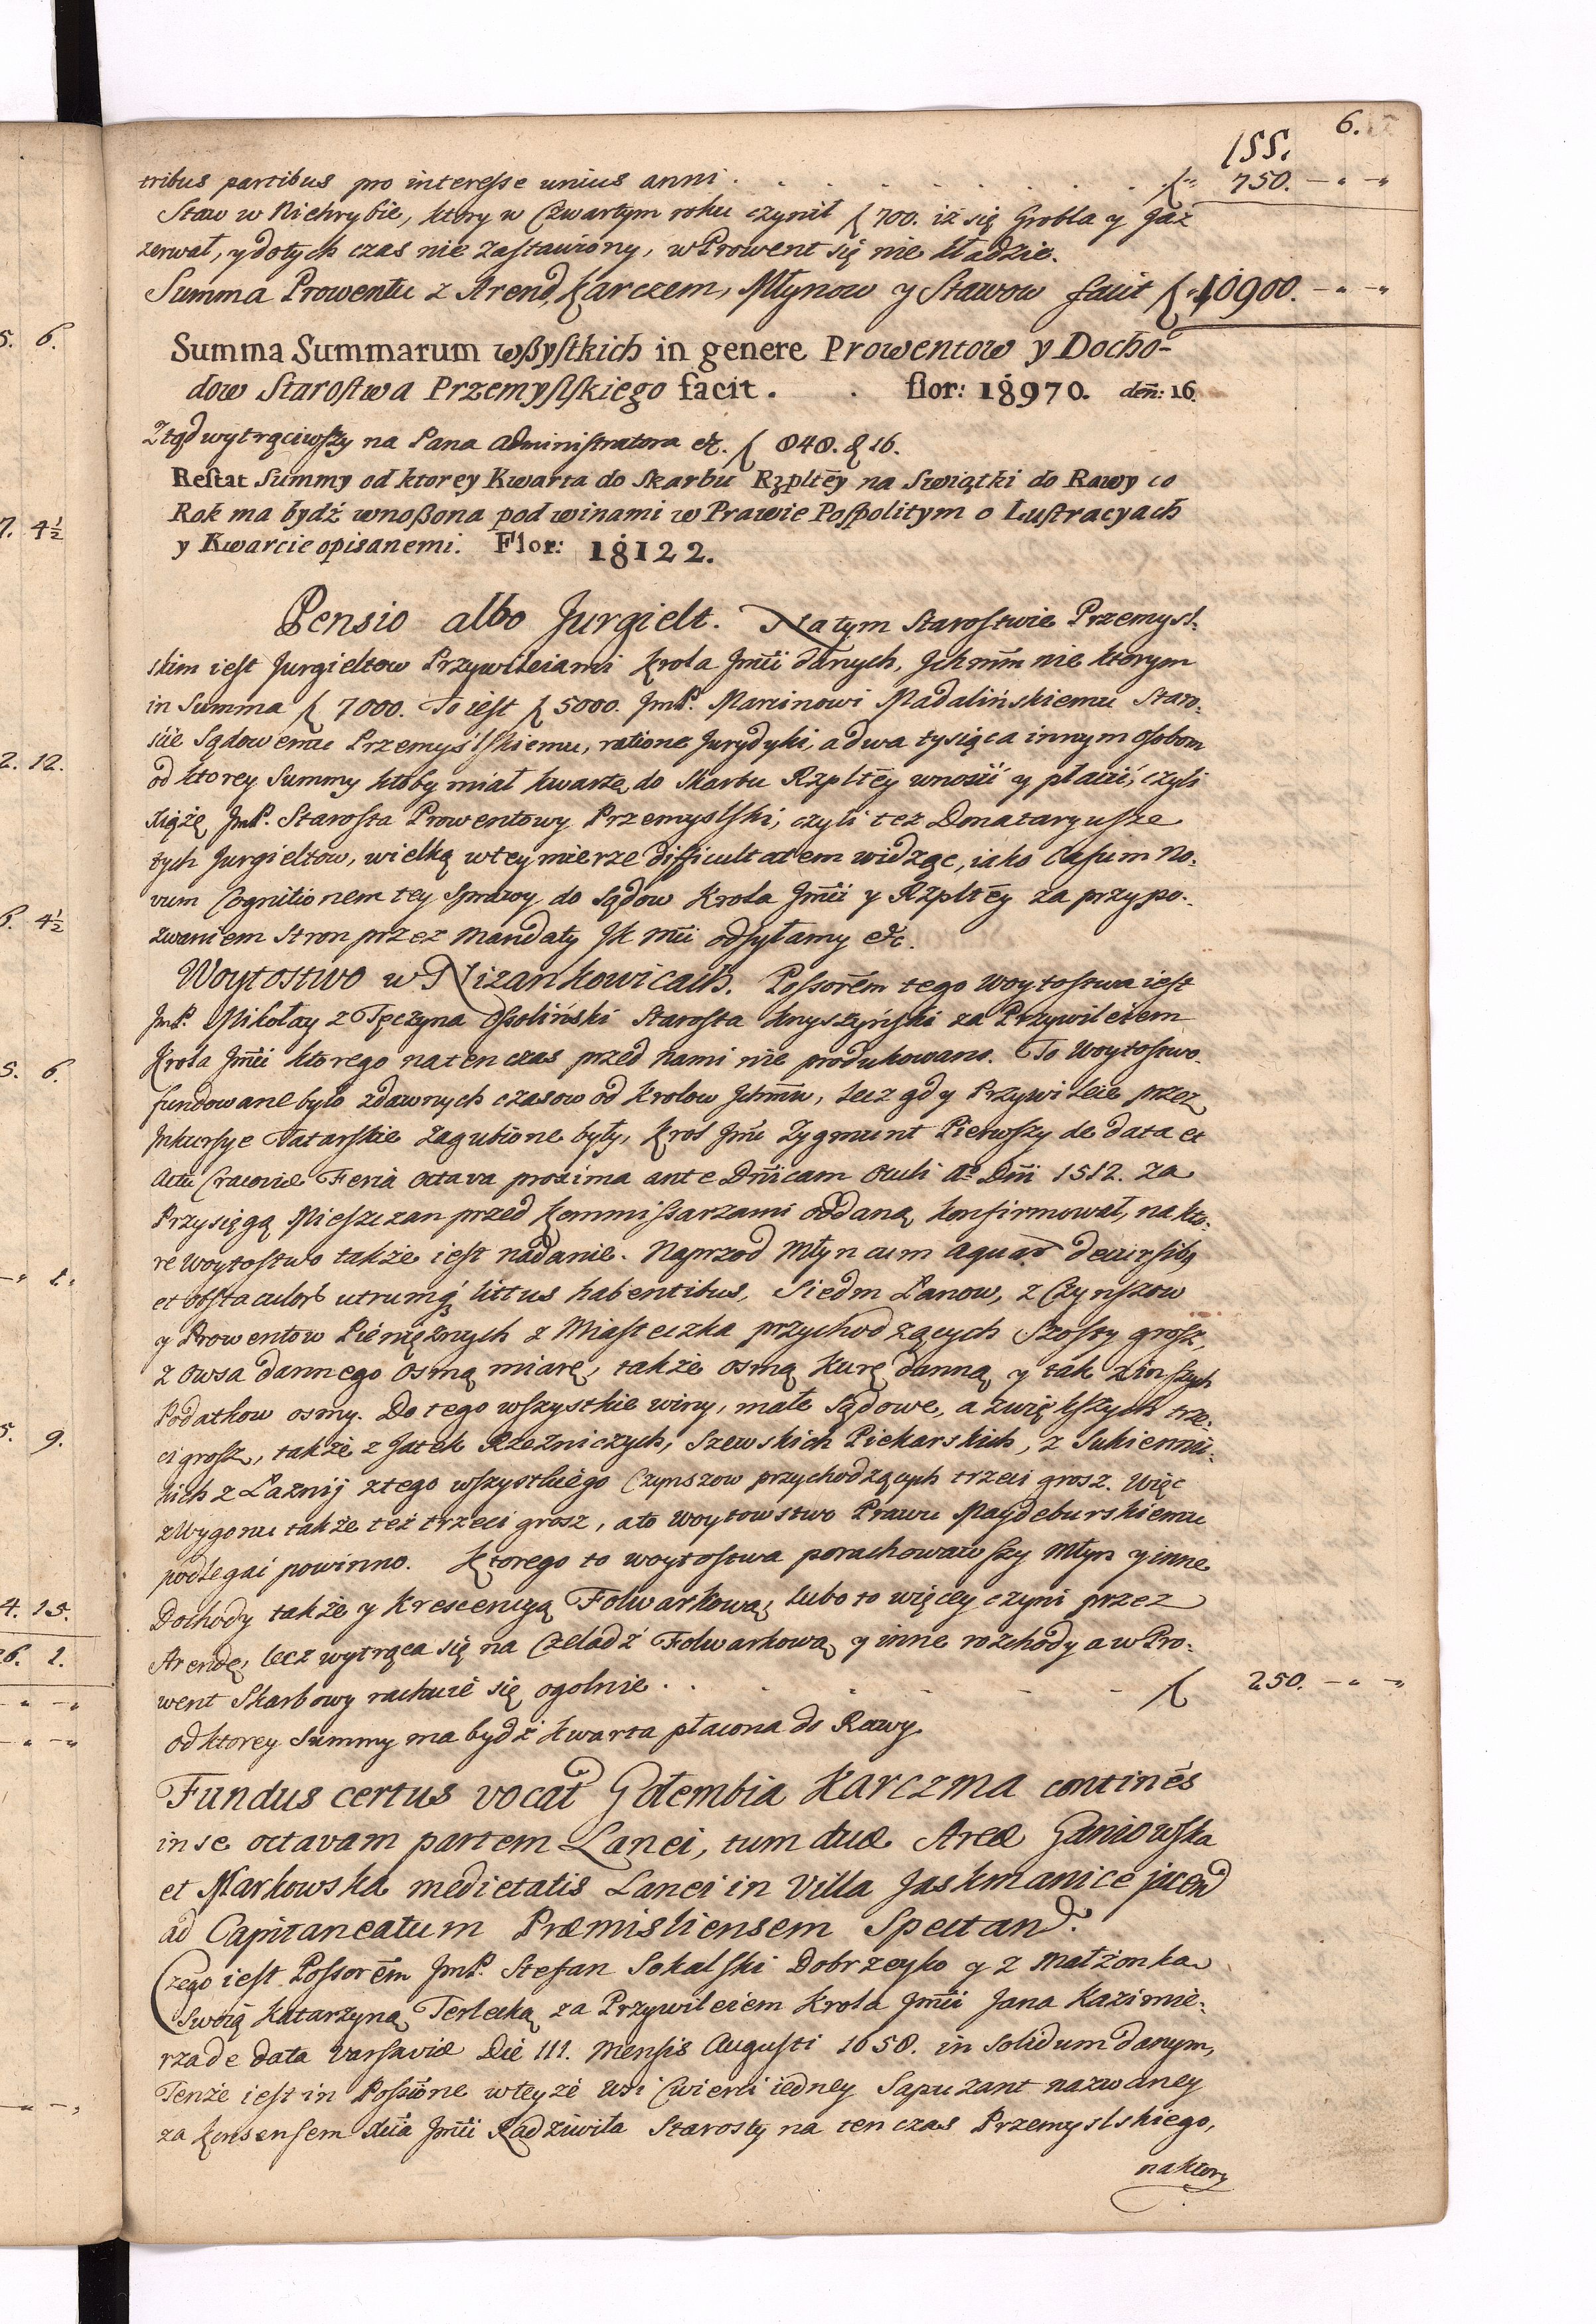 6.
155.
tribus partibus pro interesse unius anni . . . . . . . . . . ƒ 750. — " — "
Staw w Niehrybie, ktory w Czwartym roku czynił ƒ 700. iż się Grobla y Jaz
zerwał, y do tych czas nie zastawiony, w Prowent się nie kładzie.
Summa Prowentu z Arend, Karczem, Młynow y Stawow facit ƒ 10900. — " — "
Summa Summarum wßystkich in genere Prowentow y Docho-
dow Starostwa Przemyslskiego facit . . flor: 18970. den̄: 16.
Ztąd wytrąciwszy na Pana Administratora etc. ƒ 848. & 16.
Restat Summy od ktorey Kwarta do Skarbu Rzpltēy na Swiątki do Rawy co
Rok ma bydź wnoßona pod winami w Prawie Pospolitym o Lustracyach
y Kwarcie opisanemi. Flor: 18122.
Pensio albo Jurgielt. Na tym Starostwie Przemysl:
skim iest Jurgieltow Przywileiami Krola Jm̄ci danych, Jchm̄m nie ktorym
in Summa ƒ 7000. To iest ƒ 5000. JmP. Marcinowi Madalińskiemu Staro:
scie Sądowemu Przemyślskiemu, ratione Jurydyki, a dwa tysiąca innym osobom
od ktorey Summy ktoby miał kwartę do Skarbu Rzpltēy wnosić y płacić, czyli
Xiążę JmP. Starosta Prowentowy Przemyslski, czyli też Donataryusze
tych Jurgieltow, wielką w tey mierze difficultatem widząc, iako Casum No:
vum Cognitionem tey Sprawy do Sądow Krola Jm̄ci y Rzpltēy za przypo:
zwaniem Stron przez Mandaty JK Mc̄i odsyłamy etc.
Woytostwo w Nizankowicach. Possorēm tego Woytostwa iest
JmP. Mikołay z Tęczyna Ossoliński Starosta Knyszyński za Przywileiem
Krola Jm̄ci ktorego na ten czas przed nami nie produkowano. To Woytostwo
fundowane było zdawnych czasow od Krolow Jchm̄m, lecz gdy Przywileie przez
Jnkursye Tatarskie zagubione były, Krol Jm̄c Zygmunt Pierwszy de data et
Actu Cracoviæ Feriâ octava proxima ante Dn̄icam Oculi Aº Dn̄i 1512. za
Przysięgą Mieszczan przed Kommissarzami oddaną konfirmował, na kto:
re Woytostwo także iest nadanie. Naprzod Młyn cum aquar decursibq
et obstaculor utrumq littus habentibus, Siedm Łanow, z Czynszow
y Prowentow Pieniężnych z Miasteczka przychodzących Szosty grosz,
z owsa dannego osmą miarę, także osmą kurę danną y tak z inszych
Podatkow osmy. Do tego wszystkie winy, małe Sądowe, a zwiększych trze:
ci grosz, także z Jatek Rzezniczych, Szewskich Piekarskich, z Sukienni:
kich z Łaznij z tego wszystkiego Czynszow przychodzących trzeci grosz. Więc
z Wygonu także też trzeci grosz, a to Woytowstwo Prawu Maydeburskiemu
podlegać powinno. Ktorego to woytostwa porachowawszy Młyn y inne
Dochody także y Krescencyą Folwarkową, lubo to więcey czyni przez
Arendę, lecz wytrąca się na Czeladź Folwarkową y inne rozchody a w Pro:
went Skarbowy rachuie się ogolnie . . . . . . ƒ 250. — " — "
od ktorey Summy ma bydź kwarta płacona do Rawy
Fundus certus vocat Gołembia Karczma continēs
in se octavam partem Lanei, tum duæ Areæ Ganiowska
et Markowska medietatis Lanei in Villa Jaskmanice jacend
ad Capitaneatum Præmisliensem Spectand.
Czego iest Possorēm JmP. Stefan Sokalski Dobrzeyko y z Małżonką
Swoią Katarzyną Terlecką za Przywileiem Krola Jm̄ci Jana Kazimie:
rza de data Varsaviæ Die III. Mensis Augusti 1658. in Solidum danym,
Tenże iest in Possiōne w teyże Wsi Cwierci iedney Sapuzant nazwaney
za Konsensem Xcia Jm̄ci Radziwiła Starosty na ten czas Przemyslskiego,
na ktory
5. 6.
7. 4½
2. 12.
6. 4½
5. 6.
— " 1 "
5. 9.
4. 15.
26. 1.
— " — "
— " — "
— " — "